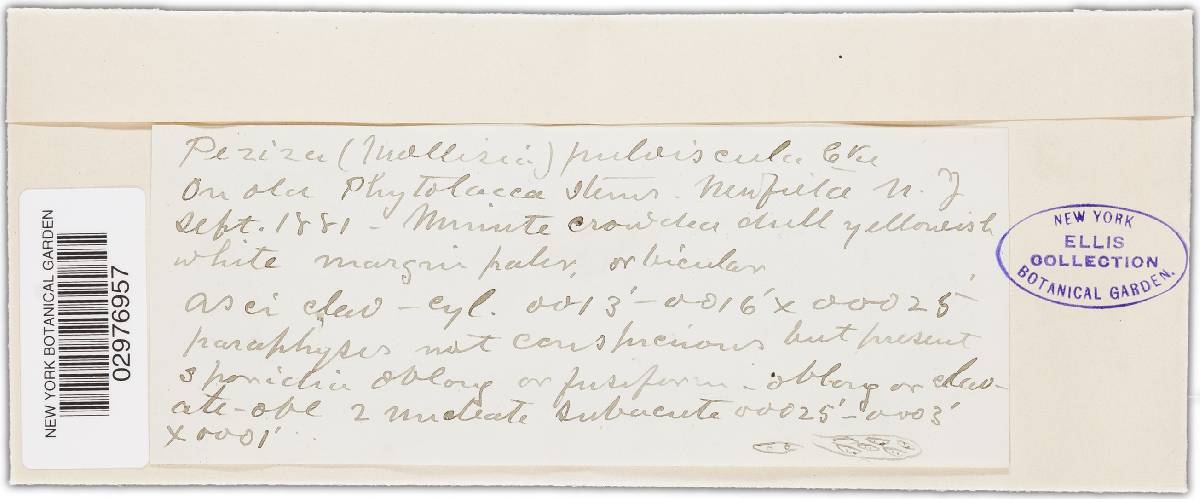 Peziza (Mollisia) pulviscula Cke
On old Phytolacca stems. Newfield N. J
Sept. 1881 – Minute crowded dull yellowish
white margin paler, orbicular
asci clav – cyl. 0013′ – 0016′ x 00025′
paraphyses not conspicuous but present
sporidia oblong or fusiform – oblong or clav-
ate-obl 2 nucleate subacute 00025′ – 0003′
x 0001′
NEW YORK BOTANICAL GARDEN
02976957
NEW YORK
ELLIS
COLLECTION
BOTANICAL GARDEN.